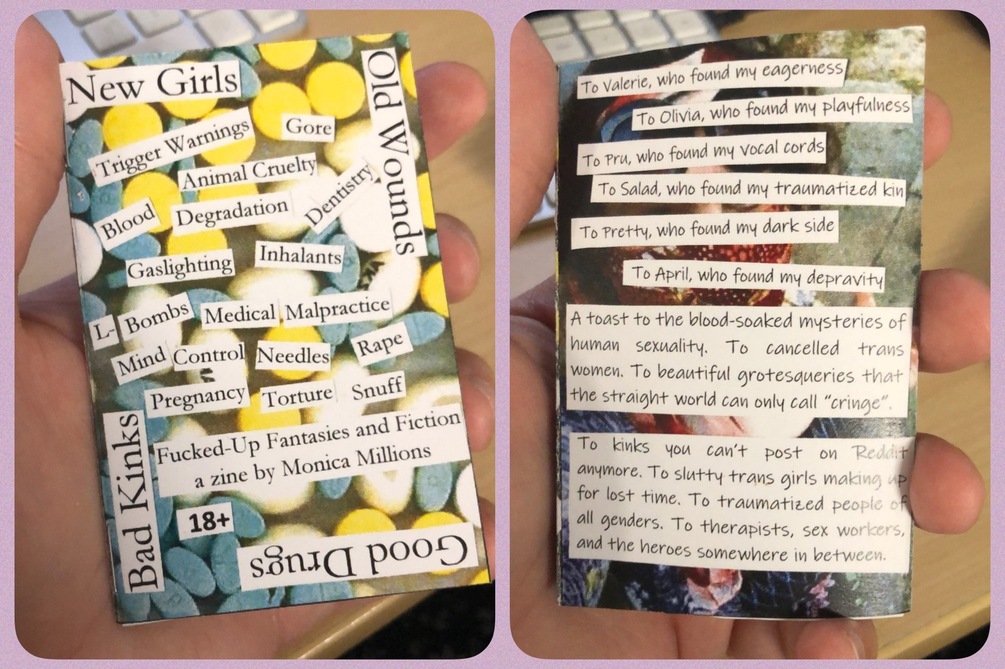 New Girls
Old Wounds
Trigger Warnings
Gore
Animal Cruelty
Dentistry
Blood
Degradation
Gaslighting
Inhalants
L- Bombs
Medical Malpractice
Mind Control
Needles
Rape
Pregnancy
Torture
Snuff
Fucked-Up Fantasies and Fiction
a zine by Monica Millions
18+
Bad Kinks
Good Drugs
To Valerie, who found my eagerness
To Olivia, who found my playfulness
To Pru, who found my vocal cords
To Salad, who found my traumatized kin
To Pretty, who found my dark side
To April, who found my depravity
A toast to the blood-soaked mysteries of
human sexuality. To cancelled trans
women. To beautiful grotesqueries that
the straight world can only call “cringe”.
To kinks you can’t post on Reddit
anymore. To slutty trans girls making up
for lost time. To traumatized people of
all genders. To therapists, sex workers,
and the heroes somewhere in between.